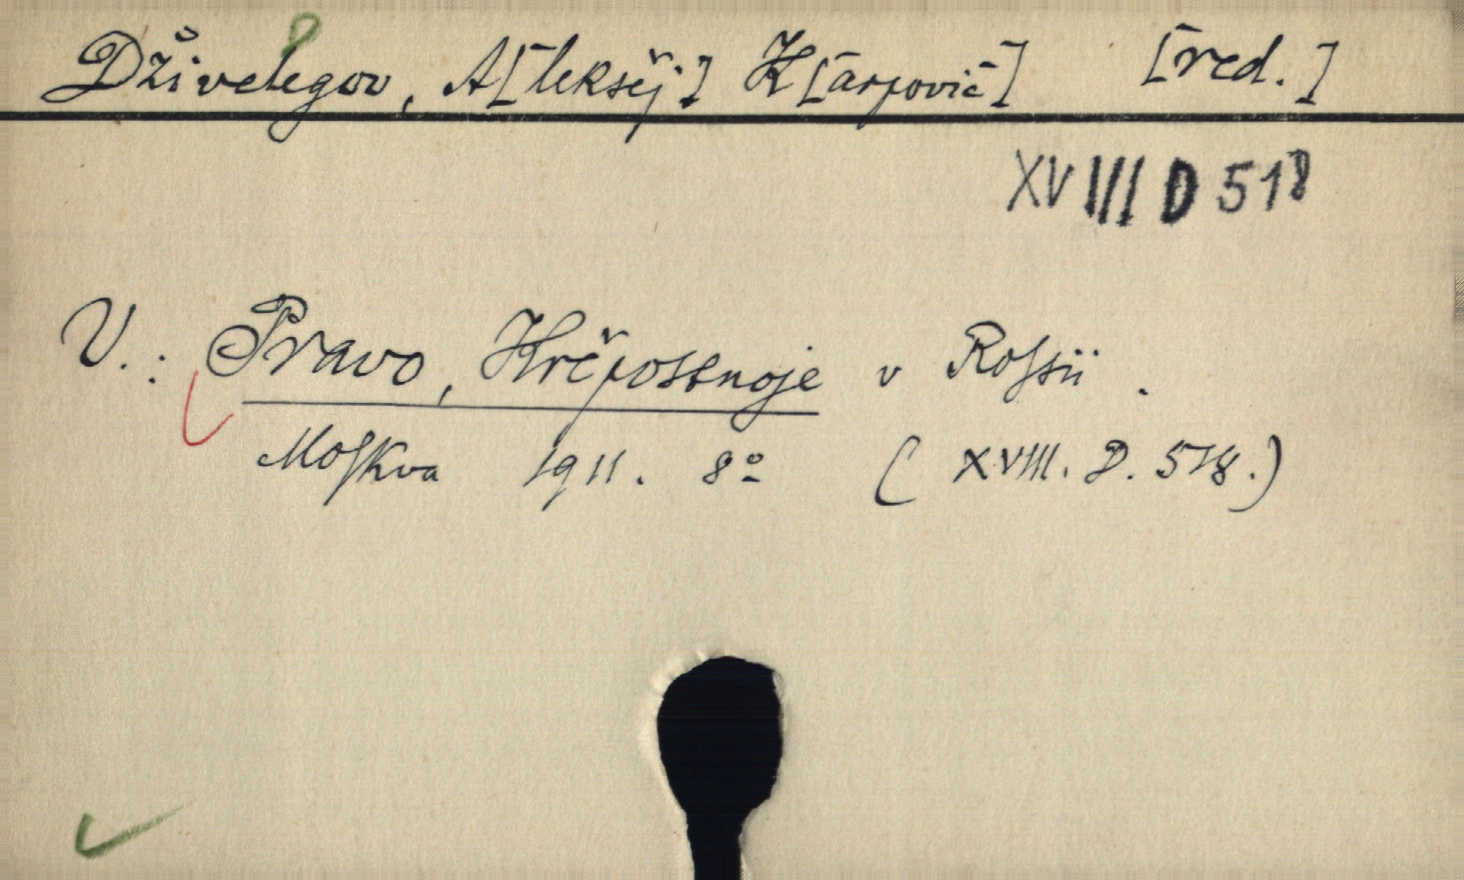 Dživelegov, A[leksěj] K[arpovič] [red.]
XVIII D 518
V.: Pravo, Krěpostnoje v Rossii.
Moskva 1911. 8º (XVIII. D. 518.)